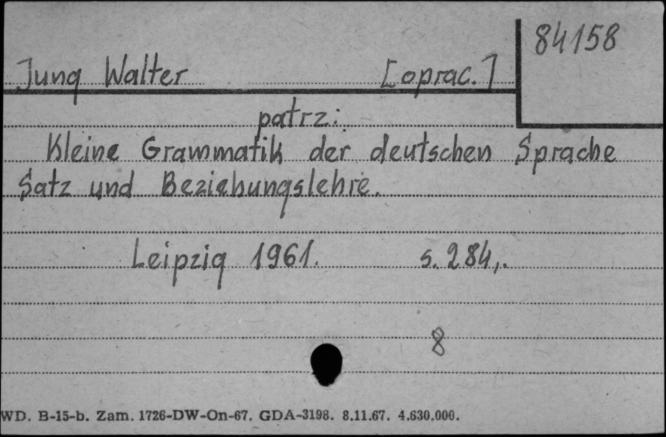 84158
Jung Walter [oprac.]
patrz:
Kleine Grammatik der deutschen Sprache
Satz und Beziehungslehre.
Leipzig 1961. s. 284,.
8
WD. B-15-b. Zam. 1726-DW-On-67. GDA-3198. 8.11.67. 4.630.000.